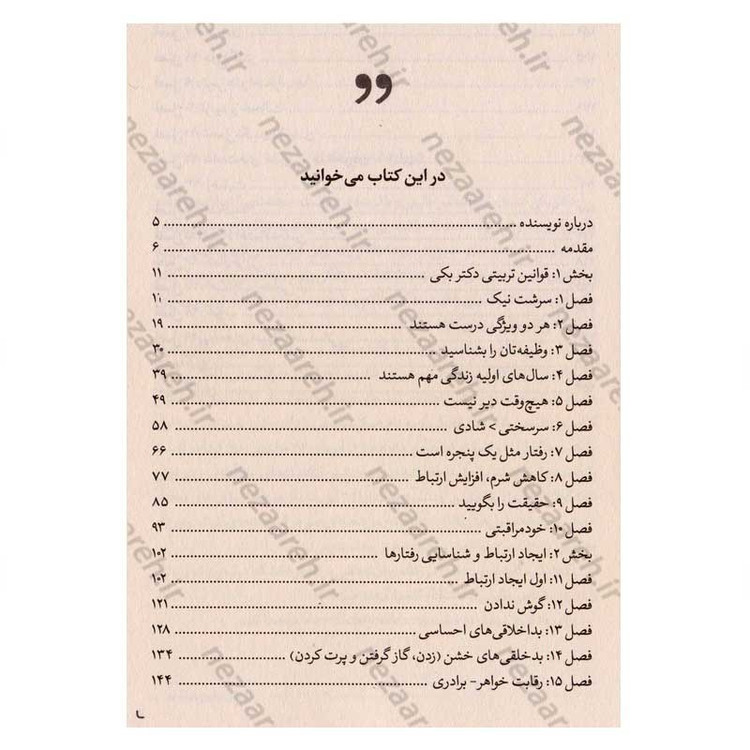 در این کتاب می‌خوانید
درباره نویسنده ........ ۵
مقدمه ........ ۶
بخش ۱: قوانین تربیتی دکتر بکی ........ ۱۱
فصل ۱: سرشت نیک ........ ۱۱
فصل ۲: هر دو ویژگی درست هستند ........ ۱۹
فصل ۳: وظیفه‌تان را بشناسید ........ ۳۰
فصل ۴: سال‌های اولیه زندگی مهم هستند ........ ۳۹
فصل ۵: هیچ‌وقت دیر نیست ........ ۴۹
فصل ۶: سرسختی > شادی ........ ۵۸
فصل ۷: رفتار مثل یک پنجره است ........ ۶۶
فصل ۸: کاهش شرم، افزایش ارتباط ........ ۷۷
فصل ۹: حقیقت را بگویید ........ ۸۵
فصل ۱۰: خودمراقبتی ........ ۹۳
بخش ۲: ایجاد ارتباط و شناسایی رفتارها ........ ۱۰۲
فصل ۱۱: اول ایجاد ارتباط ........ ۱۰۲
فصل ۱۲: گوش ندادن ........ ۱۲۱
فصل ۱۳: بداخلاقی‌های احساسی ........ ۱۲۸
فصل ۱۴: بدخلقی‌های خشن (زدن، گاز گرفتن و پرت کردن) ........ ۱۳۴
فصل ۱۵: رقابت خواهر- برادری ........ ۱۴۴
nezaareh.ir